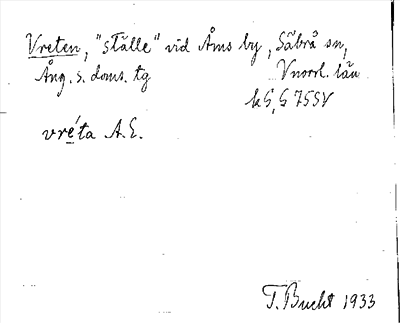 Vreten, "ställe" vid Åms by, Säbrå sn,
Ång. s. doms. tg Vnorrl. län
kS, S 75SV
vréta A.E.
T. Bucht 1933